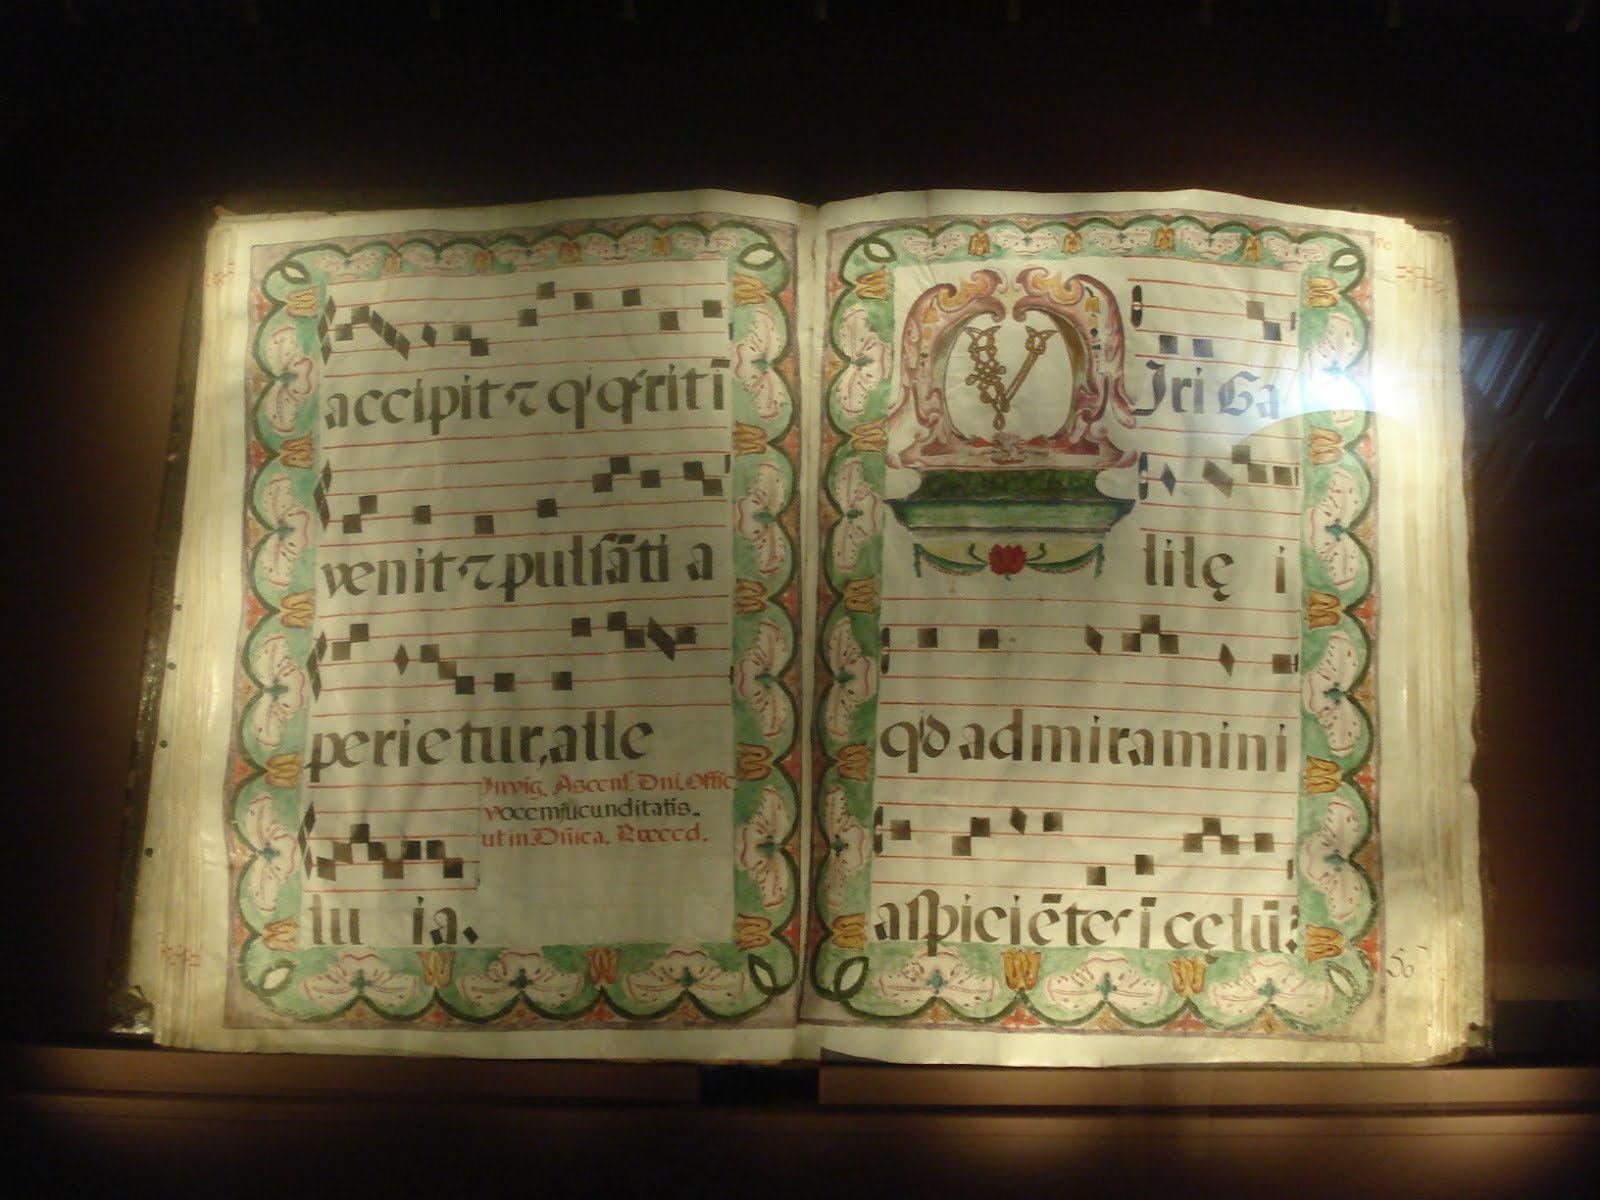 accipit ⁊ q' q̄rit ī
venit ⁊ pulsāti a
perietur, alle
Invig. Ascens. Dni. Offic
vocem jucunditatis.
ut in Dñica. Rxccd.
lu ia.
Viri Ga
lilę i
qd admiramini
aspiciētes ī cęlū?
56